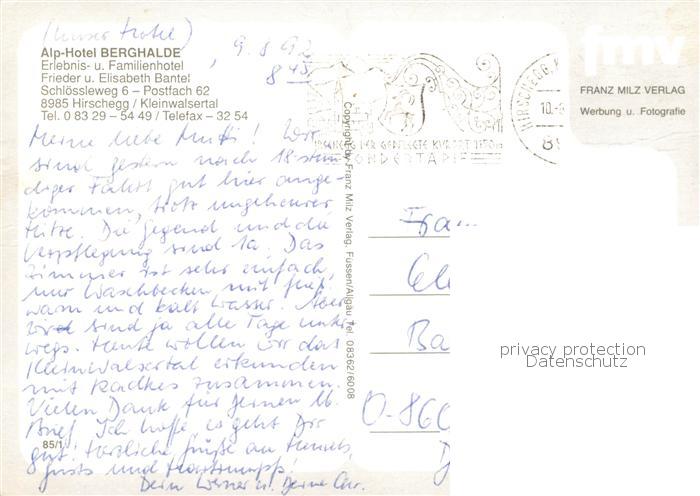 (Unser Hotel)
Alp-Hotel BERGHALDE
Erlebnis- u. Familienhotel
Frieder u. Elisabeth Bantel
Schlössleweg 6 – Postfach 62
8985 Hirschegg / Kleinwalsertal
Tel. 0 83 29 – 54 49 / Telefax – 32 54
9.8.92
8 45
Meine liebe Mutti! Wir
sind gestern nach 18 stün-
diger Fahrt gut hier ange-
kommen, trotz ungeheurer
Hitze. Die Gegend und die
Verpflegung sind 1a. Das
Zimmer ist sehr einfach,
nur Waschbecken mit fließ.
warm und kalt Wasser. Aber
wir sind ja alle Tage unter
wegs. Heute wollen wir das
Kleinwalsertal erkunden
mit Radkes zusammen.
Vielen Dank für Deinen lb.
Brief. Ich hoffe, es geht Dir
gut! Herzliche Grüße an
und
Dein Werner u. Deine
85/1
Copyright by Franz Milz Verlag, Füssen/Allgäu Tel. 08362/6008
HIRSCHEGG,
10.
89
HIRSCHEGG DER GEPFLEGTE KURORT
fmv
FRANZ MILZ VERLAG
Werbung u. Fotografie
Frau
Ba
O-860
privacy protection
Datenschutz